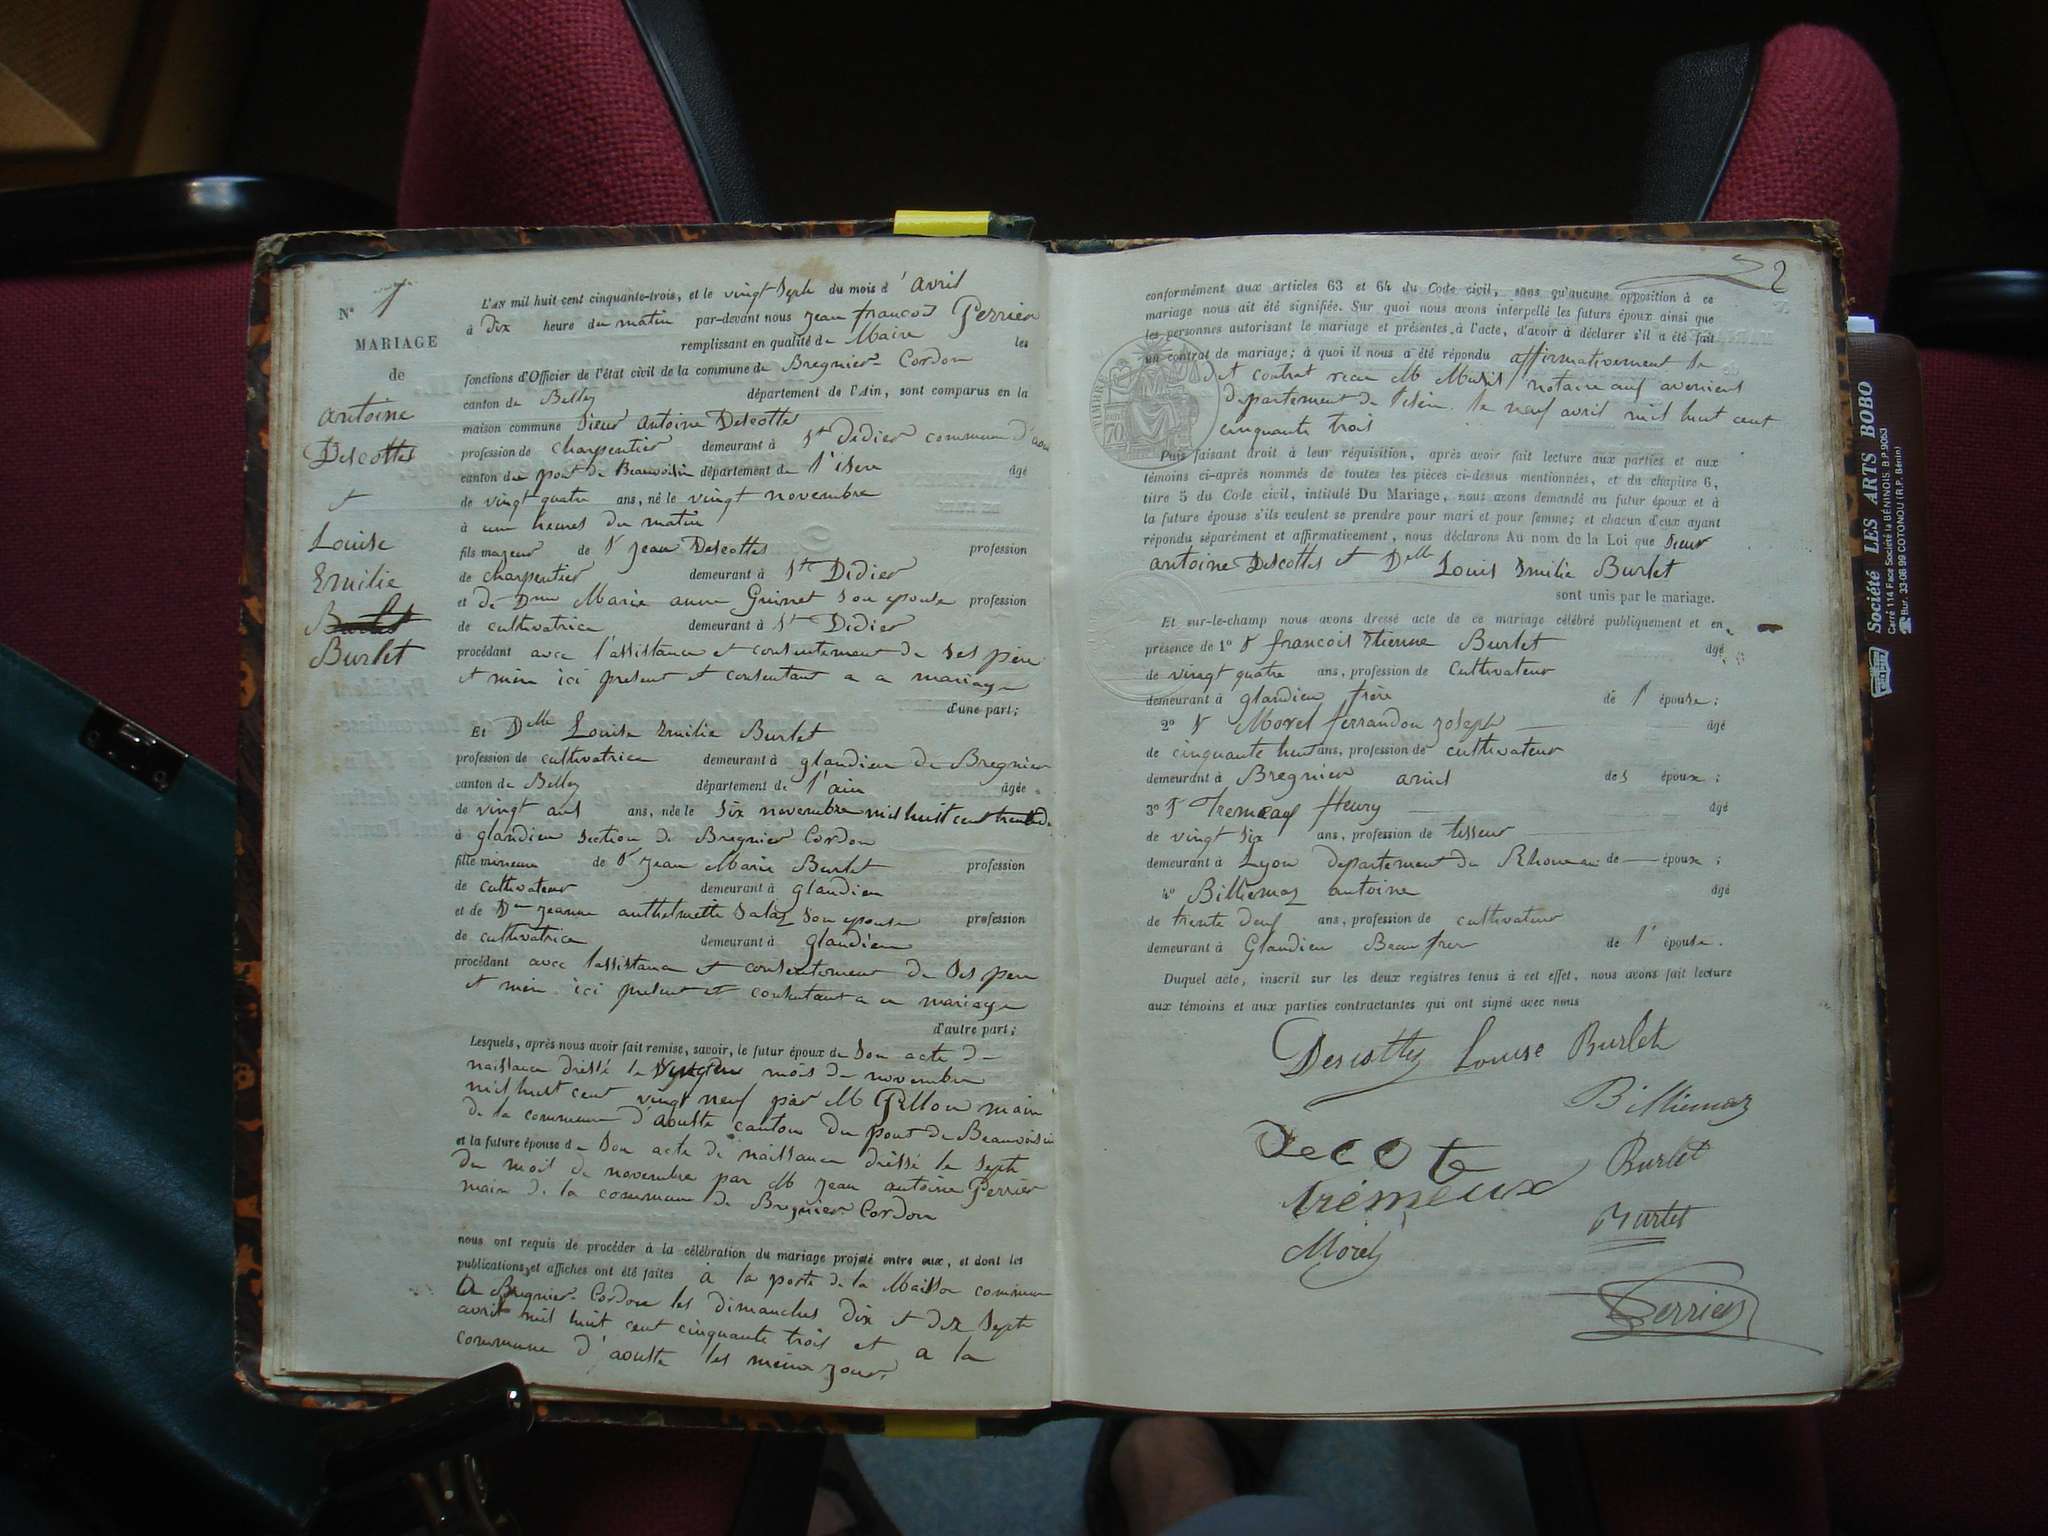 N° 1
MARIAGE
de
Antoine
Descottes
et
Louise
Emilie
Burlet
Burlet
L'AN mil huit cent cinquante-trois, et le vingt sept du mois d'avril
à dix heure du matin par-devant nous jean francois Perrier
remplissant en qualité de Maire les
fonctions d'Officier de l'état civil de la commune de Bregnier-Cordon
canton de Belley département de l'Ain, sont comparus en la
maison commune sieur Antoine Descotte
profession de charpentier demeurant à St Didier commune d'aou
canton du pont de Beauvoisin département de l'isere âgé
de vingt quatre ans, né le vingt novembre
à une heures du matin
fils majeur de Sr jean Descottes profession
de charpentier demeurant à St Didier
et de Dme Marie anne Guinet son epouse profession
de cultivatrice demeurant à St Didier
procédant avec l'assistance et consentement de ses père
et mère ici present et consentant a ce mariage
d'une part;
Et Dlle Louise Emilie Burlet
profession de cultivatrice demeurant à glandieu de Bregnier
canton de Belley département de l'ain âgée
de vingt ans ans, née le six novembre mil huit cent trente d
à glandieu section de Bregnier Cordon
fille mineure de Sr jean Marie Burlet profession
de cultivateur demeurant à glandieu
et de De jeanne anthelmette Salaz son epouse profession
de cultivatrice demeurant à glandieu
procédant avec lassistance et consentement de ses pere
et mère ici présent et consentant a ce mariage
d'autre part;
Lesquels, après nous avoir fait remise, savoir, le futur époux de son acte de
naissance dressé le vingt du mois de novembre
mil huit cent vingt neuf par M Pillou maire
de la commune d'aouste canton du pont de Beauvoisin
et la future épouse de son acte de naissance dréssé le sept
du mois de novembre par M jean antoine Perrier
maire de la commune de Bregnier Cordon
nous ont requis de procéder à la célébration du mariage projeté entre eux, et dont les
publications et affiches ont été faites à la porte de la Maison commune
de Bregnier-Cordon les dimanches dix et dix sept
avril mil huit cent cinquante trois et a la
commune d'aouste les meme jour.
2
conformément aux articles 63 et 64 du Code civil, sans qu'aucune opposition à ce
mariage nous ait été signifiée. Sur quoi nous avons interpellé les futurs époux ainsi que
les personnes autorisant le mariage et présentes à l'acte, d'avoir à déclarer s'il a été fait
un contrat de mariage; à quoi il nous a été répondu affirmativement le
dit contrat recu M notaire aux avenieres
departement de l'isère le neuf avril mil huit cent
cinquante trois
TIMBRE
70
Puis faisant droit à leur réquisition, après avoir fait lecture aux parties et aux
témoins ci-après nommés de toutes les pièces ci-dessus mentionnées, et du chapitre 6,
titre 5 du Code civil, intitulé Du Mariage, nous avons demandé au futur époux et à
la future épouse s'ils veulent se prendre pour mari et pour femme; et chacun d'eux ayant
répondu séparément et affirmativement, nous déclarons Au nom de la Loi que sieur
antoine Descottes et Delle Louis Emilie Burlet
sont unis par le mariage.
Et sur-le-champ nous avons dressé acte de ce mariage célébré publiquement et en
présence de 1° Sr francois Etienne Burlet âgé
de vingt quatre ans, profession de Cultivateur
demeurant à glandieu frère de l' épouse;
2° Sr Morel ferrandou joseph âgé
de cinquante huit ans, profession de cultivateur
demeurant à Bregnier amis des époux;
3° Sr Tremeau fleury âgé
de vingt six ans, profession de tisseur
demeurant à Lyon departement du Rhone ami de époux;
4° Billiemaz antoine âgé
de trente deux ans, profession de cultivateur
demeurant à Glandieu Beau frer de l' épouse.
Duquel acte, inscrit sur les deux registres tenus à cet effet, nous avons fait lecture
aux témoins et aux parties contractantes qui ont signé avec nous
Descottes Louise Burlet
Billiemaz
Decote Burlet
trémeux
Burlet
Morel
Perrier
Société LES ARTS BOBO
Carré 114 Face Société la BÉNINOIS. B.P.9053
Bur. 33-06 99 COTONOU (R.P. Bénin)